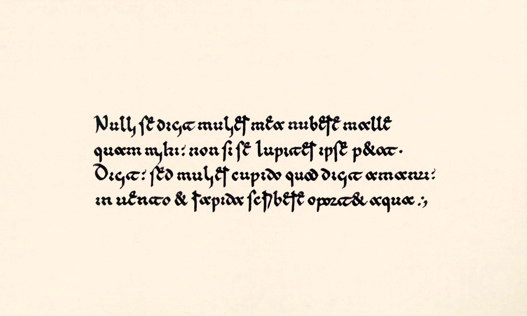 Nulli se dicit mulier mea nubere malle
quam mihi: non si se Iupiter ipse p&at.
Dicit: sed mulier cupido quod dicit amanti:
in uento & rapida scribere oport& aqua.,